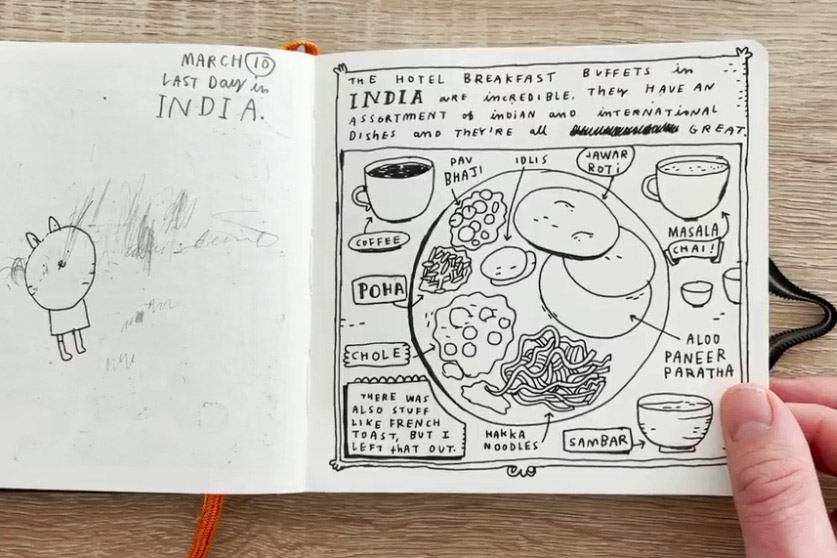 MARCH 10
LAST DAY in
INDIA.
THE HOTEL BREAKFAST BUFFETS in
INDIA ARE INCREDIBLE. THEY HAVE AN
ASSORTMENT of INDIAN AND INTERNATIONAL
DISHES AND THEY'RE ALL GREAT.
PAV
BHAJI
IDLIS
JAWAR
ROTI
COFFEE
MASALA
CHAI!
POHA
CHOLE
ALOO
PANEER
PARATHA
THERE WAS
ALSO STUFF
LIKE FRENCH
TOAST, BUT I
LEFT tHAT OUT.
HAKKA
NOODLES
SAMBAR